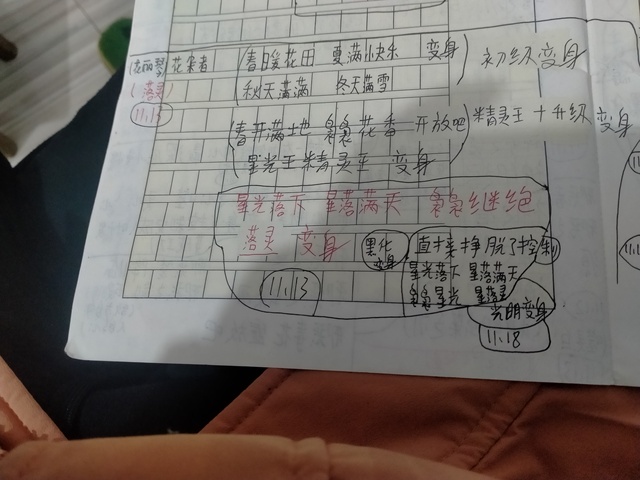 花仙者 春日暖花田 夏满快乐 变身 初级变身
(落灵) 秋天满满 冬天满雪
11.13
春开满地 袅袅花香 开放吧 精灵王+升级变身
星光王精灵王 变身
星光落下 星落满天 袅袅继绝
落灵 变身 黑化变身
11.13
直接挣脱了控制
星光落下 星落满天
袅袅星光 星落灵
光明变身
11.18